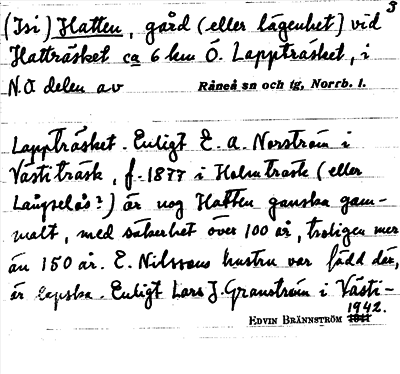 3
(Isi) Hatten, gård (eller lägenhet) vid
Hatträsket ca 6 km Ö. Lappträsket, i
N.Ö delen av Råneå sn och tg, Norrb. l.
Lappträsket. Enligt E. A. Norström i
Västiträsk, f. 1877 i Holmträsk (eller
Långselås?) är nog Hatten ganska gam-
malt, med säkerhet över 100 år, troligen mer
än 150 år. E. Nilssons hustru var född där,
är lapska. Enligt Lars J. Granström i Västi-
EDVIN BRÄNNSTRÖM 1942.